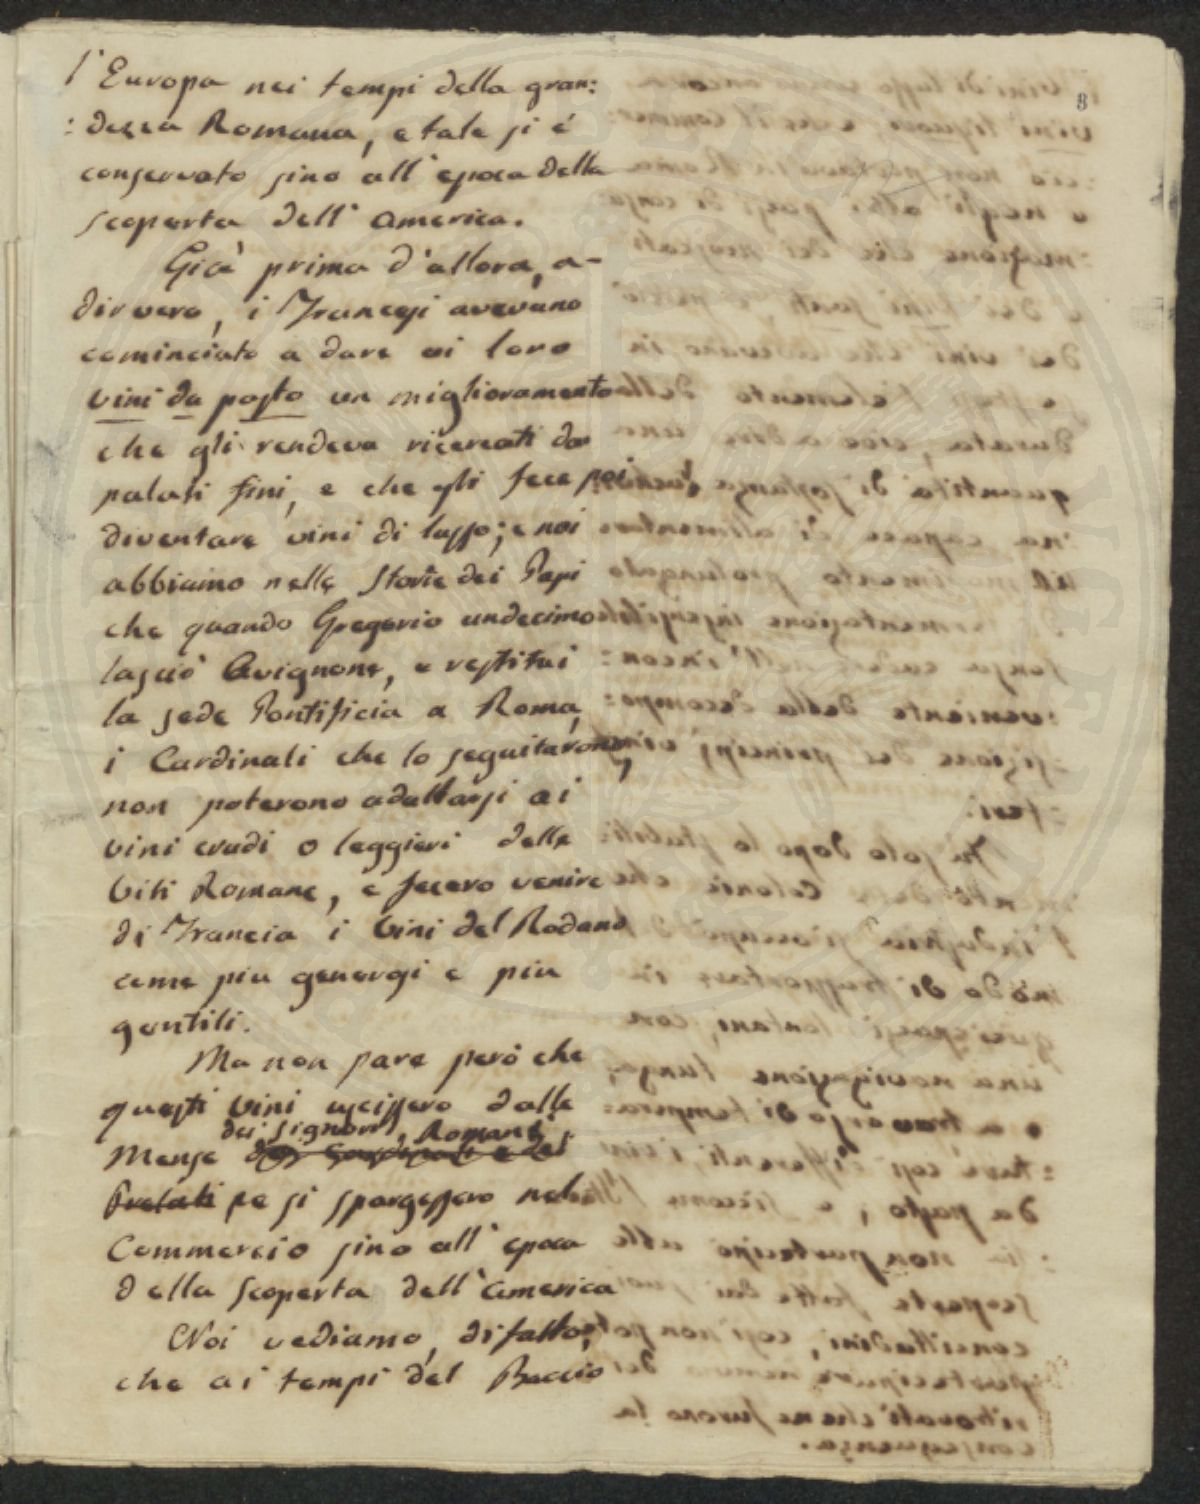 8
l'Europa nei tempi della gran:
:dezza Romana, e tale si é
conservato sino all'epoca della
scoperta dell'America.
Già prima d'allora, a-
dir vero, i Francesi avevano
cominciato a dare ai loro
vini da pasto un miglioramento
che gli rendeva ricercati da
palati fini, e che gli fece poi
diventare vini di lusso; e noi
abbiamo nelle Storie dei Papi
che quando Gregorio undecimo
lasciò Avignone, e restituì
la sede Pontificia a Roma,
i Cardinali che lo seguitarono,
non poterono adattarsi ai
vini crudi o leggieri delle
Viti Romane, e fecero venire
di Francia i Vini del Rodano
come piu generosi e piu
gentili.
Ma non pare però che
questi Vini uscissero dalle
dei signori, Romani
Mense dei Cardinali e dei
Prelati ne si spargessero nel
Commercio sino all'epoca
della scoperta dell'America
Noi vediamo, difatto,
che ai tempi del Baccio